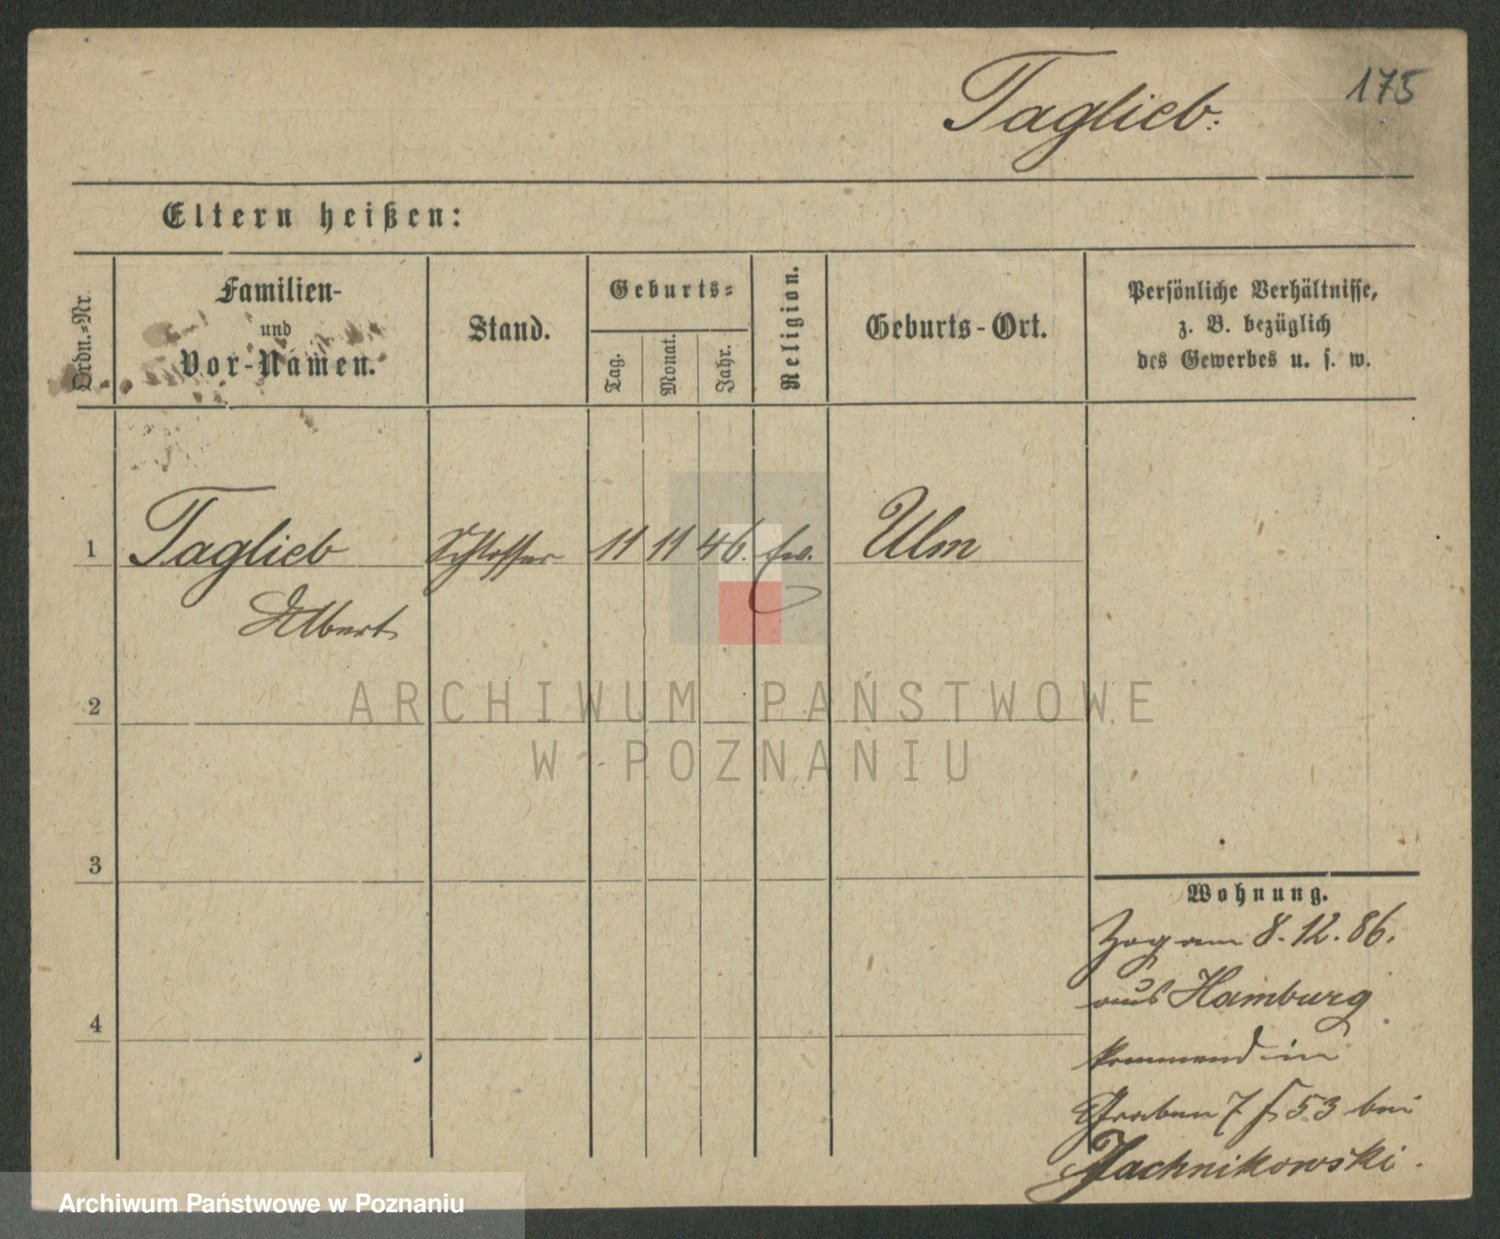 Taglieb.
175
Eltern heißen:
Ordn.-Nr.
Familien-
und
Vor-Namen.
Stand.
Geburts-
Tag.
Monat.
Jahr.
Religion.
Geburts-Ort.
Persönliche Verhältnisse,
z. B. bezüglich
des Gewerbes u. s. w.
1 Taglieb Schlosser 11 11 46. ev. Ulm
Albert
2
ARCHIWUM PAŃSTWOWE
W POZNANIU
3
Wohnung.
Zog am 8.12.86.
aus Hamburg
4
kommend in
Graben 7 53 bei
Jachnikowski.
Archiwum Państwowe w Poznaniu